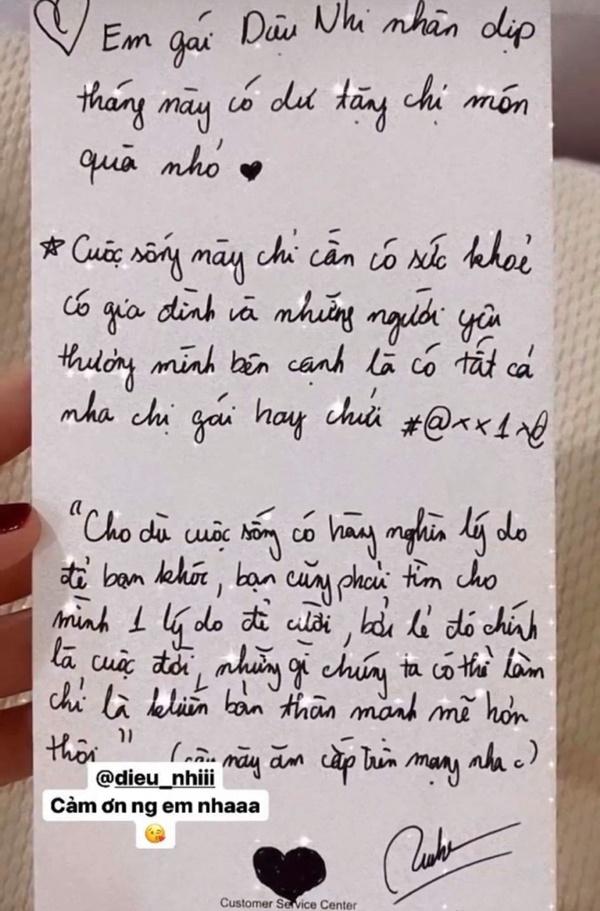 Em gái Diệu Nhi nhân dịp
tháng này có dư tặng chị món
quà nhỏ
Cuộc sống này chỉ cần có sức khoẻ
có gia đình và những người yêu
thương mình bên cạnh là có tất cả
nha chị gái hay chửi #@××1×@
"Cho dù cuộc sống có hàng nghìn lý do
để bạn khóc, bạn cũng phải tìm cho
mình 1 lý do để cười, bởi lẽ đó chính
là cuộc đời, những gì chúng ta có thể làm
chỉ là khiến bản thân mạnh mẽ hơn
thôi" (câu này ăn cắp trên mạng nha c)
@dieu_nhiii
Cảm ơn ng em nhaaa
Customer Service Center